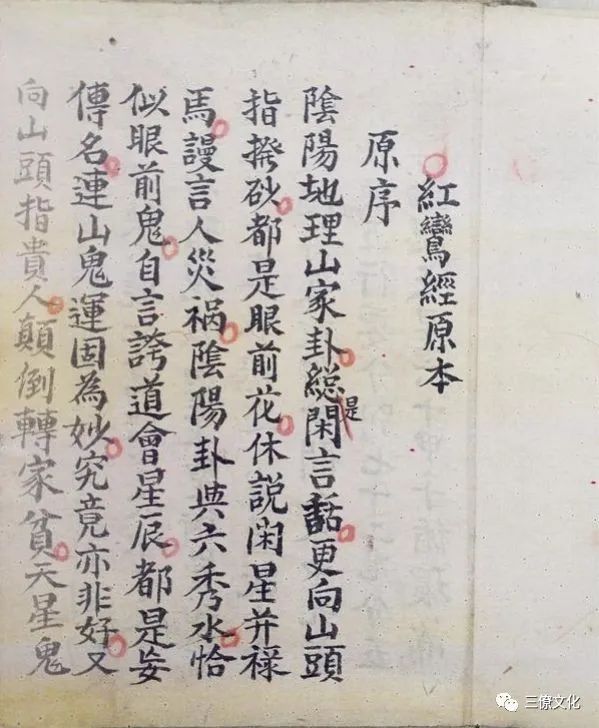 紅鸞經原本
原序
陰陽地理山家卦總是閑言話更向山頭
指撥砂都是眼前花休説闲星并祿
馬謾言人災禍陰陽卦與六秀水恰
似眼前鬼自言誇道會星辰都是妄
傳名連山鬼運固為妙究竟亦非好又
向山頭指貴人顛倒轉家貧天星鬼
三僚文化